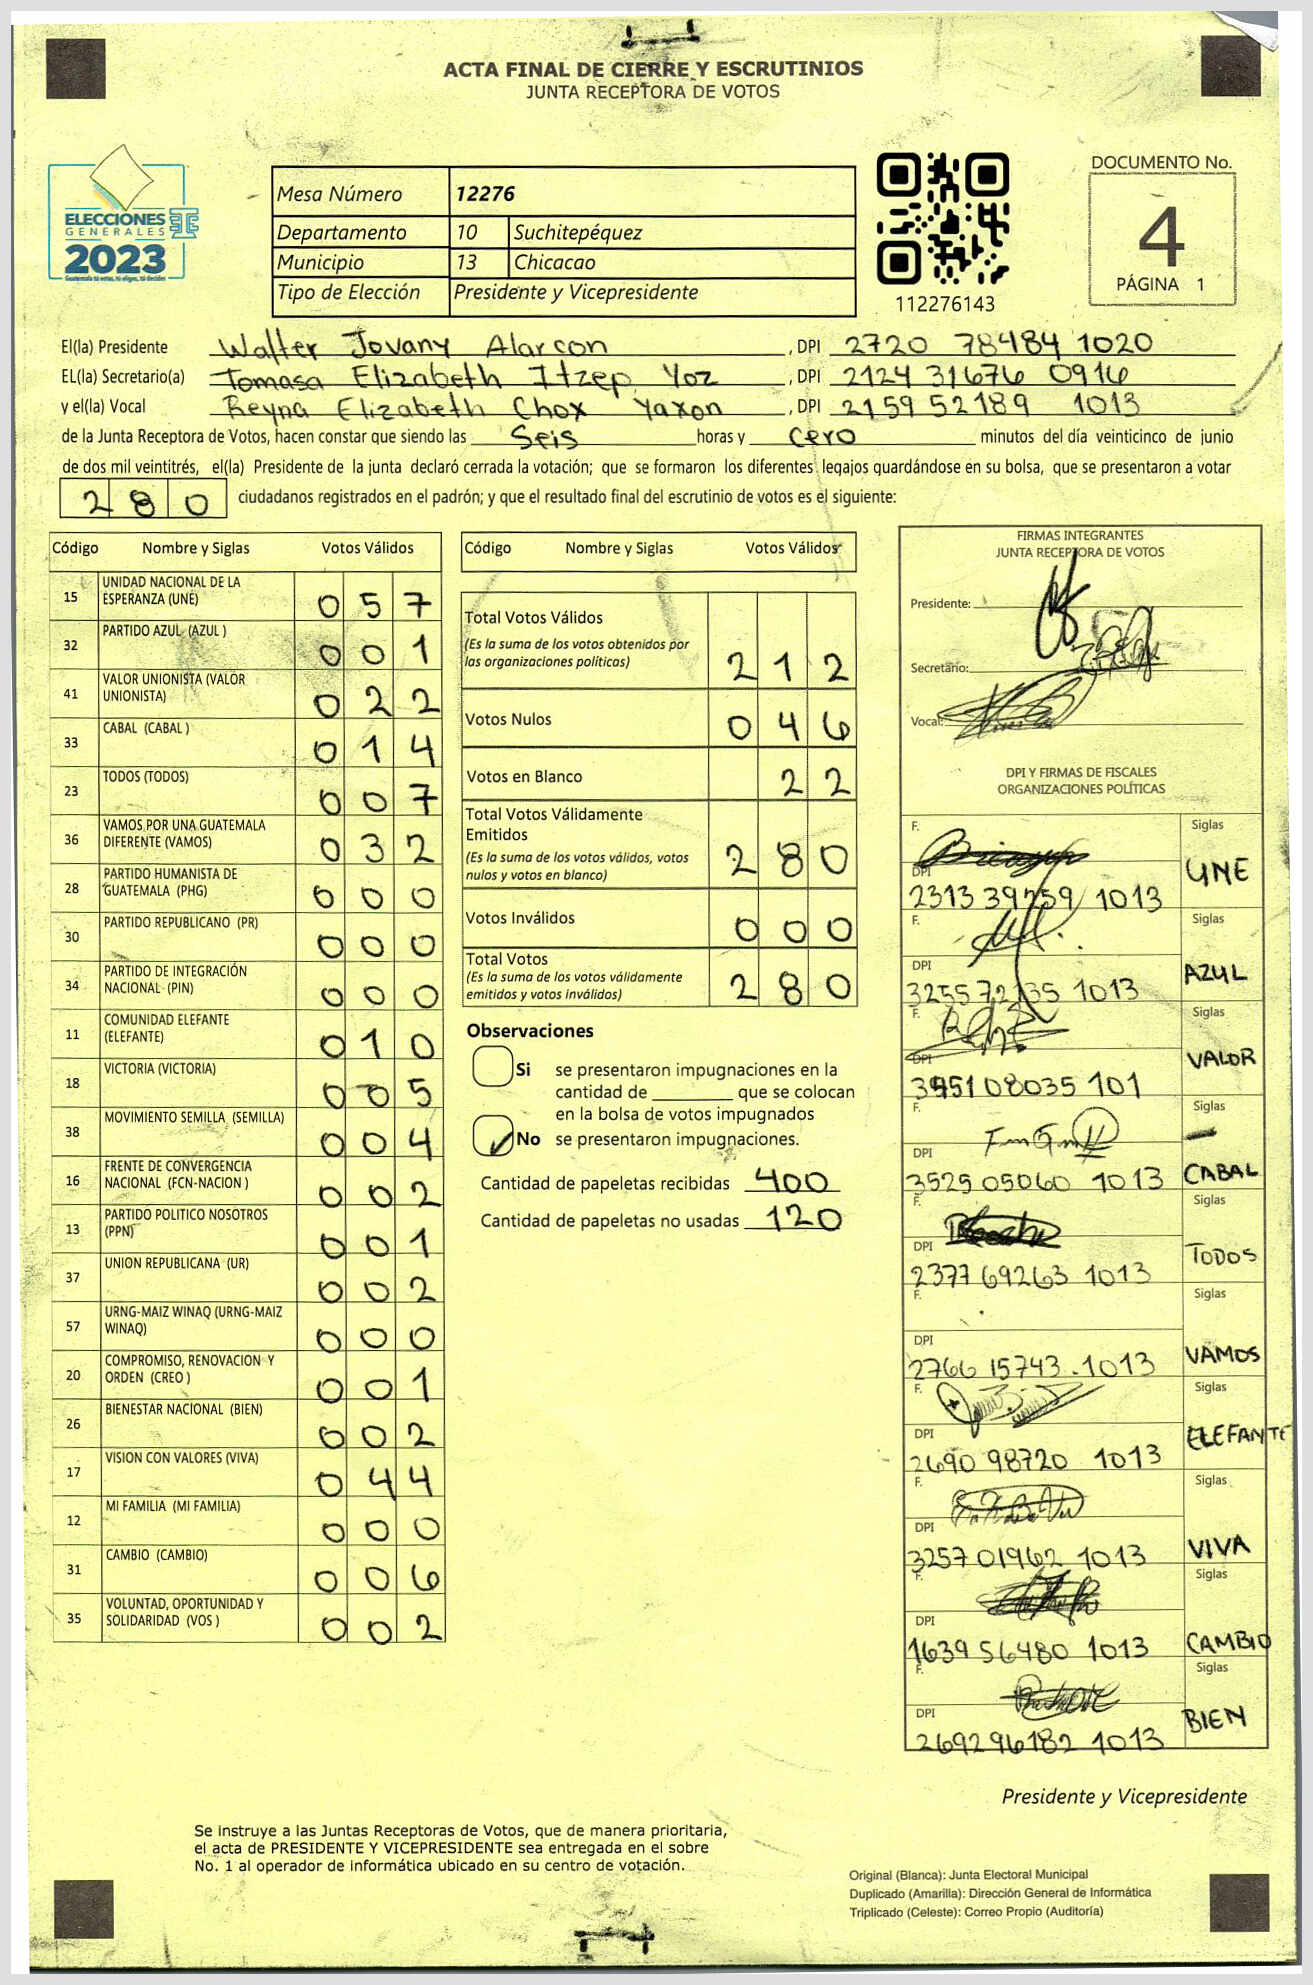 ACTA FINAL DE CIERRE Y ESCRUTINIOS
JUNTA RECEPTORA DE VOTOS
ELECCIONES
GENERALES
2023
Mesa Número 12276
Departamento 10 Suchitepéquez
Municipio 13 Chicacao
Tipo de Elección Presidente y Vicepresidente
112276143
DOCUMENTO No.
4
PÁGINA 1
El(la) Presidente Walter Jovany Alarcon , DPI 2720 78484 1020
EL(la) Secretario(a) Tomasa Elizabeth Itzep Yoz , DPI 2124 31676 0916
y el(la) Vocal Reyna Elizabeth Chox Yaxon , DPI 2159 52189 1013
de la Junta Receptora de Votos, hacen constar que siendo las Seis horas y cero minutos del día veinticinco de junio
de dos mil veintitrés, el(la) Presidente de la junta declaró cerrada la votación; que se formaron los diferentes legajos guardándose en su bolsa, que se presentaron a votar
280 ciudadanos registrados en el padrón; y que el resultado final del escrutinio de votos es el siguiente:
Código Nombre y Siglas Votos Válidos
15 UNIDAD NACIONAL DE LA
ESPERANZA (UNE) 0 5 7
32 PARTIDO AZUL (AZUL ) 0 0 1
41 VALOR UNIONISTA (VALOR
UNIONISTA) 0 2 2
33 CABAL (CABAL ) 0 1 4
23 TODOS (TODOS) 0 0 7
36 VAMOS POR UNA GUATEMALA
DIFERENTE (VAMOS) 0 3 2
28 PARTIDO HUMANISTA DE
GUATEMALA (PHG) 0 0 0
30 PARTIDO REPUBLICANO (PR) 0 0 0
34 PARTIDO DE INTEGRACIÓN
NACIONAL (PIN) 0 0 0
11 COMUNIDAD ELEFANTE
(ELEFANTE) 0 1 0
18 VICTORIA (VICTORIA) 0 0 5
38 MOVIMIENTO SEMILLA (SEMILLA) 0 0 4
16 FRENTE DE CONVERGENCIA
NACIONAL (FCN-NACION ) 0 0 2
13 PARTIDO POLITICO NOSOTROS
(PPN) 0 0 1
37 UNION REPUBLICANA (UR) 0 0 2
57 URNG-MAIZ WINAQ (URNG-MAIZ
WINAQ) 0 0 0
20 COMPROMISO, RENOVACION Y
ORDEN (CREO ) 0 0 1
26 BIENESTAR NACIONAL (BIEN) 0 0 2
17 VISION CON VALORES (VIVA) 0 4 4
12 MI FAMILIA (MI FAMILIA) 0 0 0
31 CAMBIO (CAMBIO) 0 0 6
35 VOLUNTAD, OPORTUNIDAD Y
SOLIDARIDAD (VOS ) 0 0 2
Código Nombre y Siglas Votos Válidos
Total Votos Válidos
(Es la suma de los votos obtenidos por
las organizaciones políticas) 2 1 2
Votos Nulos 0 4 6
Votos en Blanco 2 2
Total Votos Válidamente
Emitidos
(Es la suma de los votos válidos, votos
nulos y votos en blanco) 2 8 0
Votos Inválidos 0 0 0
Total Votos
(Es la suma de los votos válidamente
emitidos y votos inválidos) 2 8 0
Observaciones
Si se presentaron impugnaciones en la
cantidad de ________ que se colocan
en la bolsa de votos impugnados
No se presentaron impugnaciones.
Cantidad de papeletas recibidas 400
Cantidad de papeletas no usadas 120
FIRMAS INTEGRANTES
JUNTA RECEPTORA DE VOTOS
Presidente:
Secretario:
Vocal:
DPI Y FIRMAS DE FISCALES
ORGANIZACIONES POLÍTICAS
F. Siglas
DPI UNE
2313 39759 1013
F. Siglas
DPI AZUL
1013
F. Siglas
DPI VALOR
08035 101
F. Siglas
DPI CABAL
3525 05060 1013
F. Siglas
DPI TODOS
2377 69263 1013
F. Siglas
DPI VAMOS
2766 15743 1013
F. Siglas
DPI ELEFANTE
2690 98720 1013
F. Siglas
DPI VIVA
3257 01962 1013
F. Siglas
DPI CAMBIO
1639 56480 1013
F. Siglas
DPI BIEN
2692 96182 1013
Presidente y Vicepresidente
Se instruye a las Juntas Receptoras de Votos, que de manera prioritaria,
el acta de PRESIDENTE Y VICEPRESIDENTE sea entregada en el sobre
No. 1 al operador de informática ubicado en su centro de votación.
Original (Blanca): Junta Electoral Municipal
Duplicado (Amarilla): Dirección General de Informática
Triplicado (Celeste): Correo Propio (Auditoría)